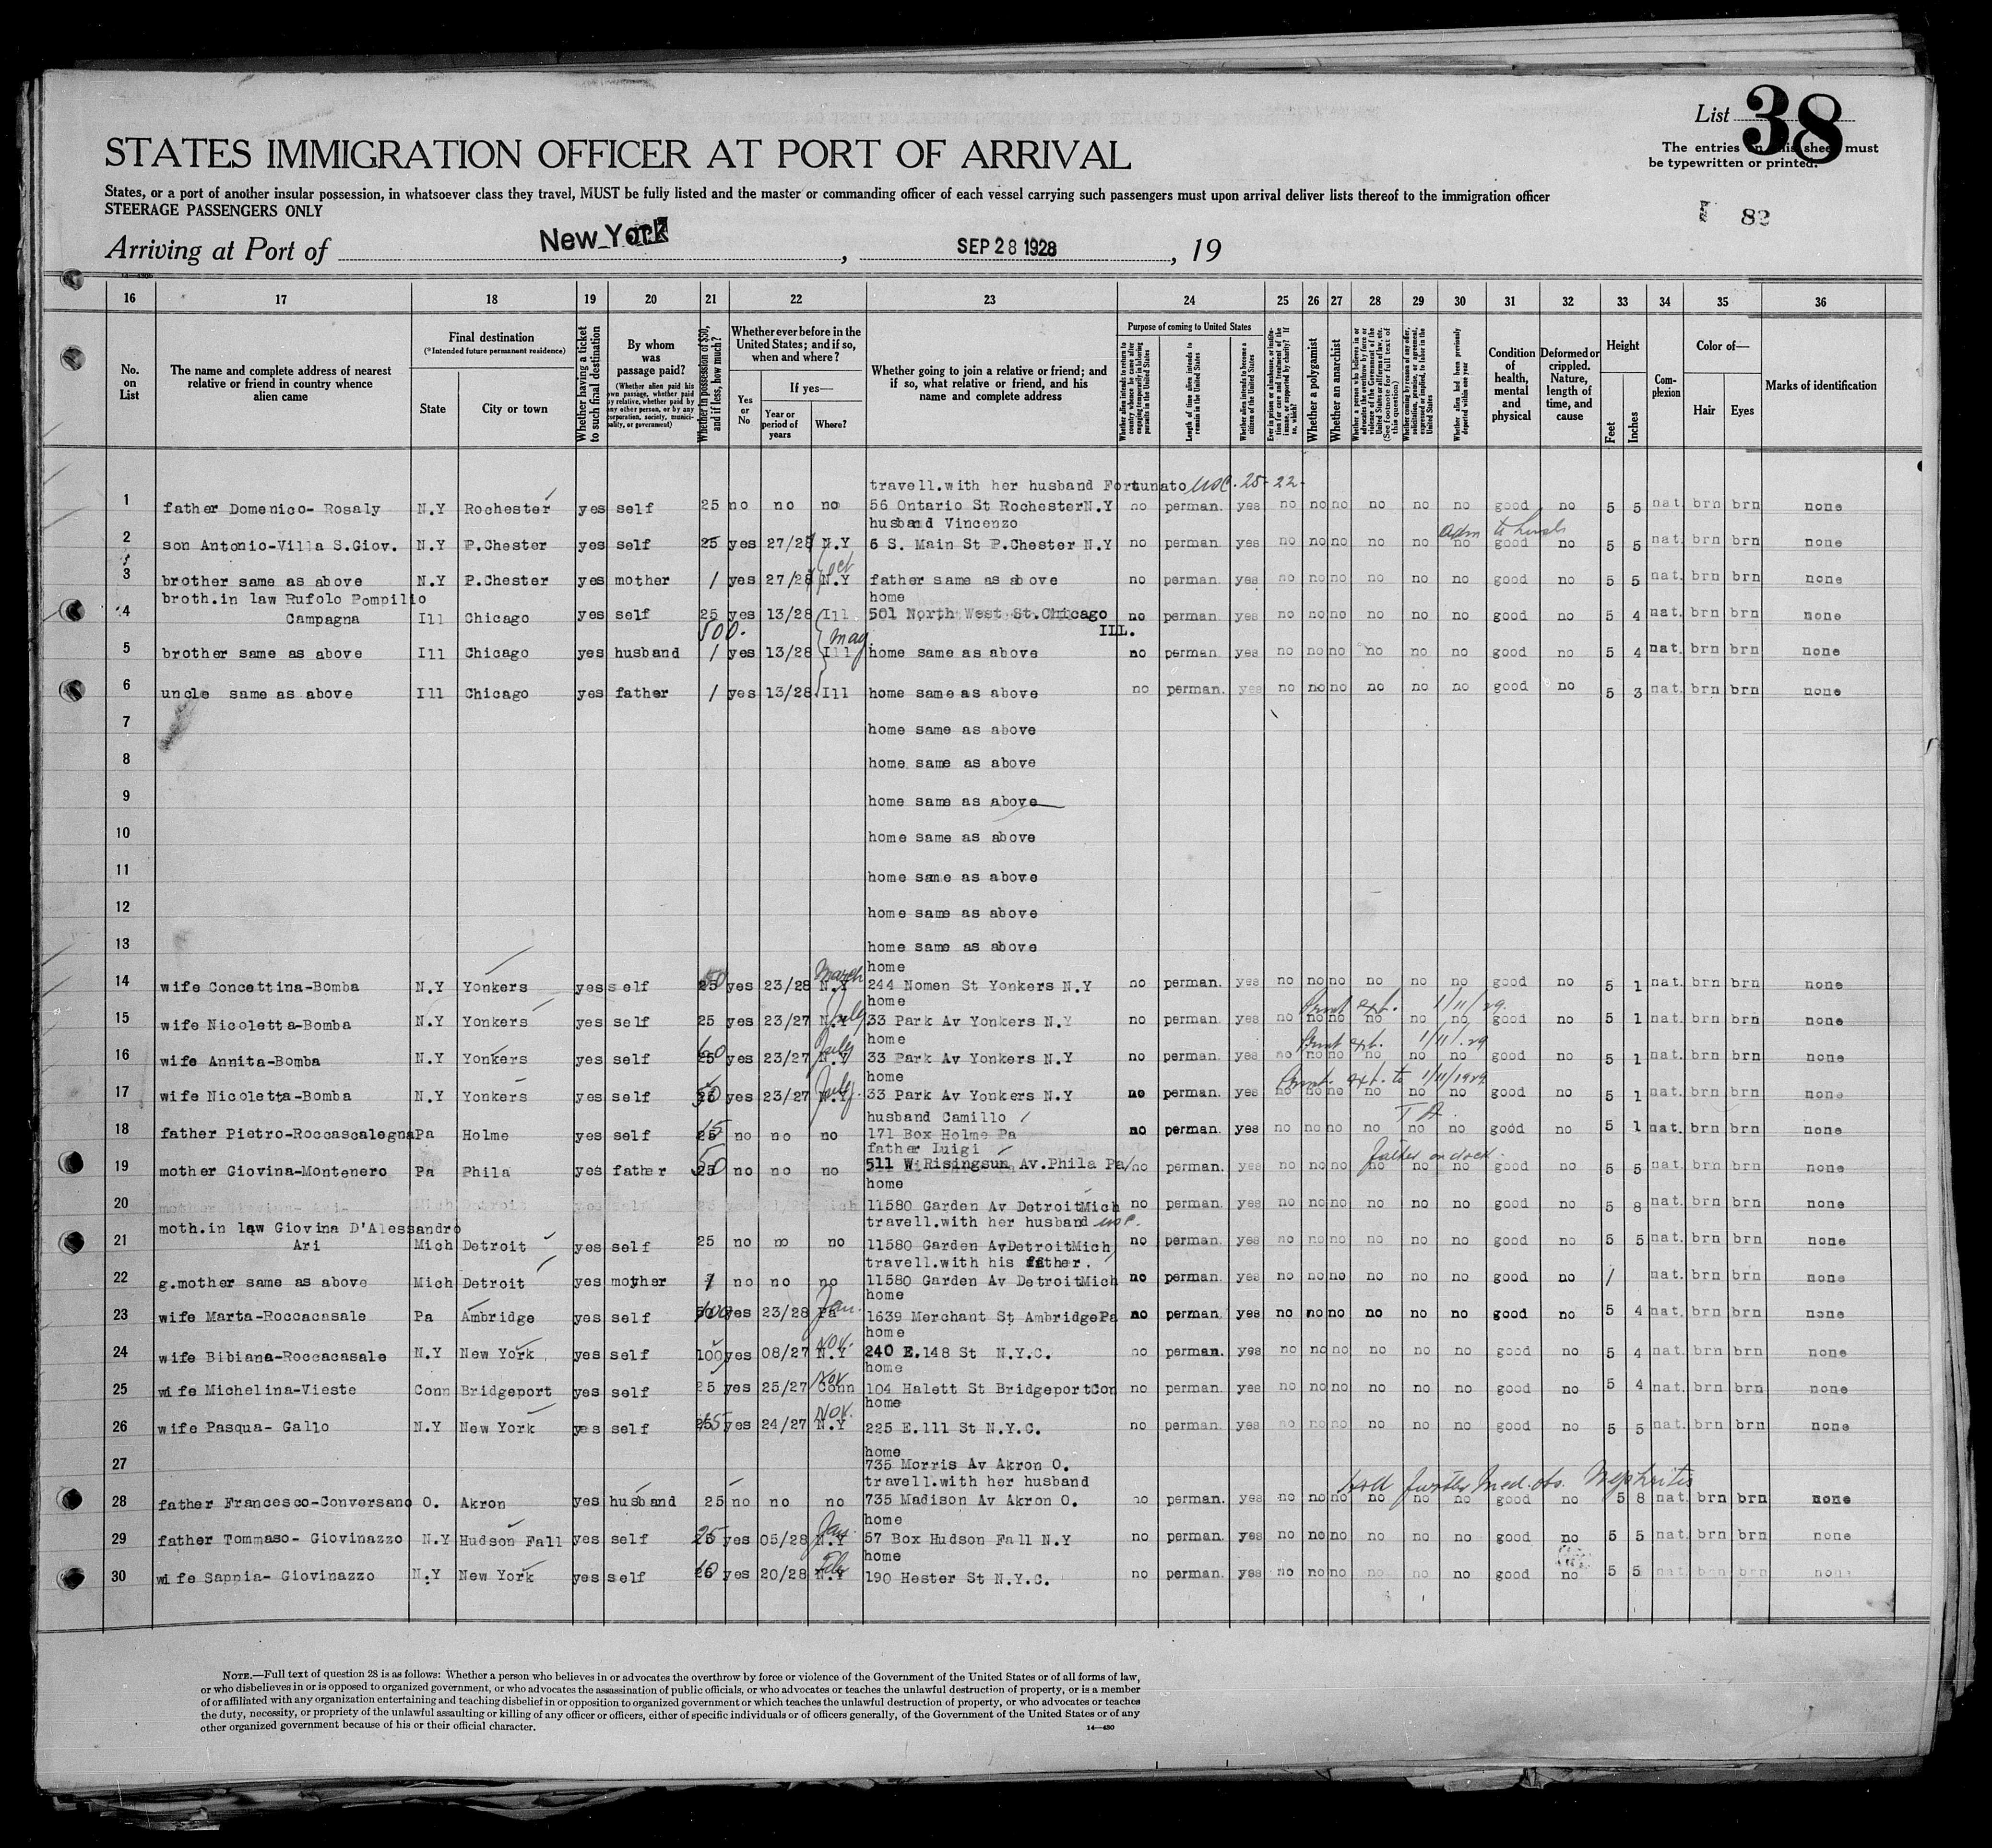 List 38
The entries on this sheet must
be typewritten or printed.
STATES IMMIGRATION OFFICER AT PORT OF ARRIVAL
States, or a port of another insular possession, in whatsoever class they travel, MUST be fully listed and the master or commanding officer of each vessel carrying such passengers must upon arrival deliver lists thereof to the immigration officer
STEERAGE PASSENGERS ONLY
82
Arriving at Port of New York, SEP 28 1928, 19
16 17 18 19 20 21 22 23 24 25 26 27 28 29 30 31 32 33 34 35 36
No. on List
The name and complete address of nearest relative or friend in country whence alien came
Final destination
(*Intended future permanent residence)
State
City or town
Whether having a ticket to such final destination
By whom was passage paid?
(Whether alien paid his own passage, whether paid by relative, whether paid by any other person, or by any corporation, society, municipality, or government)
Whether in possession of $50, and if less, how much?
Whether ever before in the United States; and if so, when and where?
Yes or No
If yes—
Year or period of years
Where?
Whether going to join a relative or friend; and if so, what relative or friend, and his name and complete address
Purpose of coming to United States
Whether alien intends to return to country whence he came after engaging temporarily in laboring pursuits in the United States
Length of time alien intends to remain in the United States
Whether alien intends to become a citizen of the United States
Ever in prison or almshouse, or institution for care and treatment of the insane, or supported by charity? If so, which?
Whether a polygamist
Whether an anarchist
Whether a person who believes in or advocates the overthrow by force or violence of the Government of the United States or all forms of law, etc. (See footnote for full text of this question)
Whether coming by reason of any offer, solicitation, promise, or agreement, expressed or implied, to labor in the United States
Whether alien had been previously deported within one year
Condition of health, mental and physical
Deformed or crippled. Nature, length of time, and cause
Height
Feet
Inches
Complexion
Color of—
Hair
Eyes
Marks of identification
travell.with her husband Fortunato USC. 25-22-
1 father Domenico- Rosaly N.Y Rochester yes self 25 no no no 56 Ontario St RochesterN.Y no perman. yes no no no no no no good no 5 5 nat. brn brn none
husband Vincenzo
2 son Antonio-Villa S.Giov. N.Y P.Chester yes self 25 yes 27/28 N.Y 6 S. Main St P.Chester N.Y no perman. yes no no no no no no good no 5 5 nat. brn brn none
Oct
3 brother same as above N.Y P.Chester yes mother / yes 27/28 N.Y father same as above no perman. yes no no no no no no good no 5 5 nat. brn brn none
broth.in law Rufolo Pompilio home
4 Campagna Ill Chicago yes self 25 yes 13/28 Ill 501 North West St.Chicago no perman. yes no no no no no no good no 5 4 nat. brn brn none
500. May. ILL.
5 brother same as above Ill Chicago yes husband / yes 13/28 Ill home same as above no perman. yes no no no no no no good no 5 4 nat. brn brn none
6 uncle same as above Ill Chicago yes father / yes 13/28 Ill home same as above no perman. yes no no no no no no good no 5 3 nat. brn brn none
7 home same as above
8 home same as above
9 home same as above
10 home same as above
11 home same as above
12 home same as above
13 home same as above
March home
14 wife Concettina-Bomba N.Y Yonkers yes self 25 50 yes 23/28 N.Y 244 Nomen St Yonkers N.Y no perman. yes no no no no no no good no 5 1 nat. brn brn none
July home 1/11/29.
15 wife Nicoletta-Bomba N.Y Yonkers yes self 25 yes 23/27 N.Y 33 Park Av Yonkers N.Y no perman. yes no no no no no no good no 5 1 nat. brn brn none
July home 1/11/.29
16 wife Annita-Bomba N.Y Yonkers yes self 25 yes 23/27 N.Y 33 Park Av Yonkers N.Y no perman. yes no no no no no no good no 5 1 nat. brn brn none
July home ext. to 1/11/1929
17 wife Nicoletta-Bomba N.Y Yonkers yes self 25 50 yes 23/27 N.Y 33 Park Av Yonkers N.Y no perman. yes no no no no no no good no 5 1 nat. brn brn none
husband Camillo
18 father Pietro-Roccascalegna Pa Holme yes self 25 15 no no no 171 Box Holme Pa no perman. yes no no no no no no good no 5 1 nat. brn brn none
father Luigi father on dock.
19 mother Giovina-Montenero Pa Phila yes father 25 50 no no no 511 W.Risingsun Av.Phila Pa no perman. yes no no no no no no good no 5 5 nat. brn brn none
home
20 Mich Detroit 11580 Garden Av DetroitMich no perman. yes no no no no no no good no 5 8 nat. brn brn none
moth.in law Giovina D'Alessandro travell.with her husband USC.
21 Ari Mich Detroit yes self 25 no no no 11580 Garden AvDetroitMich no perman. yes no no no no no no good no 5 5 nat. brn brn none
travell.with his father.
22 g.mother same as above Mich Detroit yes mother / no no no 11580 Garden Av DetroitMich no perman. yes no no no no no no good no / nat. brn brn none
Jan. home
23 wife Marta-Roccacasale Pa Ambridge yes self yes 23/28 Pa 1639 Merchant St AmbridgePa no perman. yes no no no no no no good no 5 4 nat. brn brn none
Nov. home
24 wife Bibiana-Roccacasale N.Y New York yes self 100 yes 08/27 N.Y 240 E.148 St N.Y.C. no perman. yes no no no no no no good no 5 4 nat. brn brn none
Nov home
25 wife Michelina-Vieste Conn Bridgeport yes self 25 yes 25/27 Conn 104 Halett St BridgeportCon no perman. yes no no no no no no good no 5 4 nat. brn brn none
Nov. home
26 wife Pasqua- Gallo N.Y New York yes self 25 yes 24/27 N.Y 225 E.111 St N.Y.C. no perman. yes no no no no no no good no 5 5 nat. brn brn none
home
27 735 Morris Av Akron O.
travell.with her husband Hold further med. obs. Nephritis
28 father Francesco-Conversano O. Akron yes husband 25 no no no 735 Madison Av Akron O. no perman. yes no no no no no no good no 5 8 nat. brn brn none
Jan. home
29 father Tommaso- Giovinazzo N.Y Hudson Fall yes self 25 yes 05/28 N.Y 57 Box Hudson Fall N.Y no perman. yes no no no no no no good no 5 5 nat. brn brn none
Feb home
30 wife Sappia- Giovinazzo N.Y New York yes self yes 20/28 N.Y 190 Hester St N.Y.C. no perman. yes no no no no no no good no 5 5 nat. brn brn none
NOTE.—Full text of question 28 is as follows: Whether a person who believes in or advocates the overthrow by force or violence of the Government of the United States or of all forms of law,
or who disbelieves in or is opposed to organized government, or who advocates the assassination of public officials, or who advocates or teaches the unlawful destruction of property, or is a member
of or affiliated with any organization entertaining and teaching disbelief in or opposition to organized government or which teaches the unlawful destruction of property, or who advocates or teaches
the duty, necessity, or propriety of the unlawful assaulting or killing of any officer or officers, either of specific individuals or of officers generally, of the Government of the United States or of any
other organized government because of his or their official character.
14—430